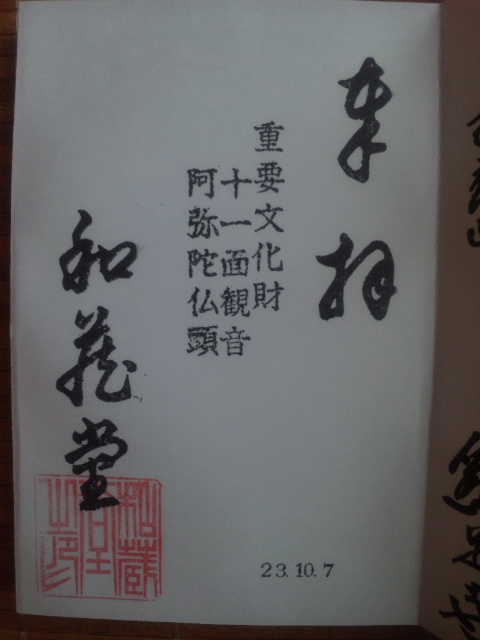 奉拝
重要文化財
十一面観音
阿弥陀仏頭
和蔵堂
和蔵堂之印
23.10.7